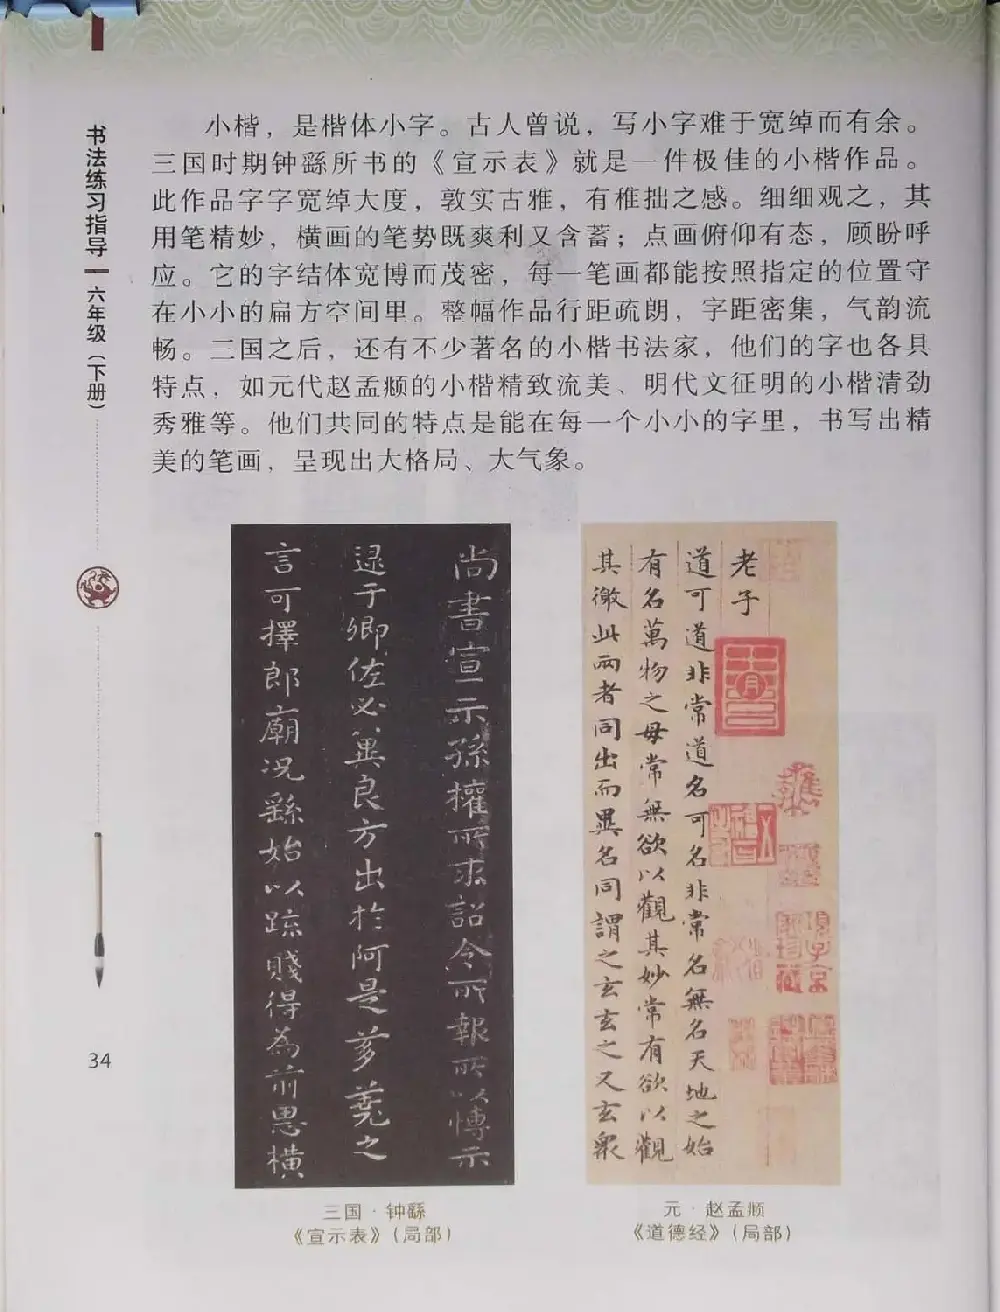 书法练习指导
六年级（下册）
小楷，是楷体小字。古人曾说，写小字难于宽绰而有余。
三国时期钟繇所书的《宣示表》就是一件极佳的小楷作品。
此作品字字宽绰大度，敦实古雅，有稚拙之感。细细观之，其
用笔精妙，横画的笔势既爽利又含蓄；点画俯仰有态，顾盼呼
应。它的字结体宽博而茂密，每一笔画都能按照指定的位置守
在小小的扁方空间里。整幅作品行距疏朗，字距密集，气韵流
畅。三国之后，还有不少著名的小楷书法家，他们的字也各具
特点，如元代赵孟頫的小楷精致流美、明代文征明的小楷清劲
秀雅等。他们共同的特点是能在每一个小小的字里，书写出精
美的笔画，呈现出大格局、大气象。
尚書宣示孫權所求詔令所報所以博示
逮于卿佐必冀良方出於阿是芻蕘之
言可擇郎廟况繇始以疏賤得為前恩橫
老子
道可道非常道名可名非常名無名天地之始
有名萬物之母常無欲以觀其妙常有欲以觀
其徼此兩者同出而異名同謂之玄玄之又玄衆
三国·钟繇
《宣示表》（局部）
元·赵孟頫
《道德经》（局部）
34